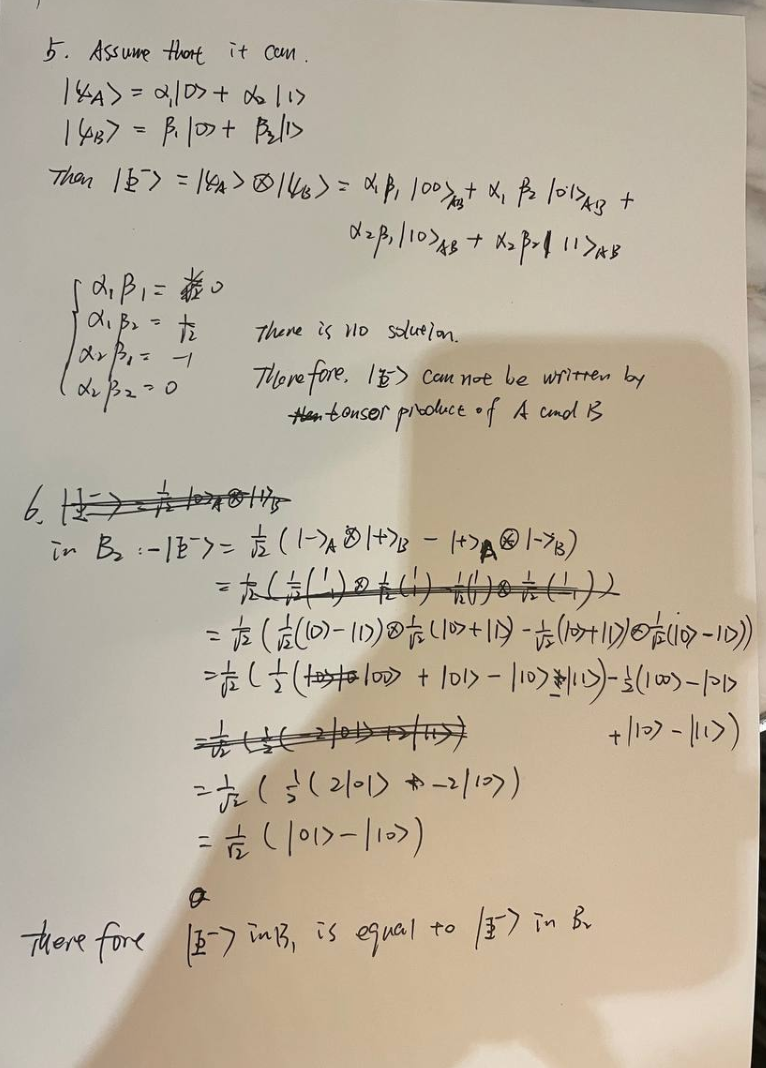 5. Assume that it can.
|ψA> = α₁|0> + α₂|1>
|ψB> = β₁|0> + β₂|1>
Then |Ψ⁻> = |ψA> ⊗ |ψB> = α₁β₁|00>AB + α₁β₂|01>AB +
α₂β₁|10>AB + α₂β₂|11>AB
α₁β₁ = 0
α₁β₂ = 1/√2
α₂β₁ = -1
α₂β₂ = 0
There is no solution.
Therefore, |Ψ⁻> can not be written by
tensor product of A and B
6. |Ψ⁻> = 1/√2 |0>A ⊗ |1>B
in B₂ : -|Ψ⁻> = 1/√2 (|->A ⊗ |+>B - |+>A ⊗ |->B)
= 1/√2 (1/√2 (1 -1) ⊗ 1/√2 (1 1) - 1/√2 (1 1) ⊗ 1/√2 (1 -1))
= 1/√2 (1/√2 (|0> - |1>) ⊗ 1/√2 (|0> + |1>) - 1/√2 (|0> + |1>) ⊗ 1/√2 (|0> - |1>))
= 1/√2 (1/2 (|00> + |01> - |10> - |11>) - 1/2 (|00> - |01>
+ |10> - |11>)
= 1/√2 (1/2 (-2|01> + 2|11>)
= 1/√2 (1/2 (2|01> - 2|10>)
= 1/√2 (|01> - |10>)
Therefore |Ψ⁻> in B₁ is equal to |Ψ⁻> in B₂